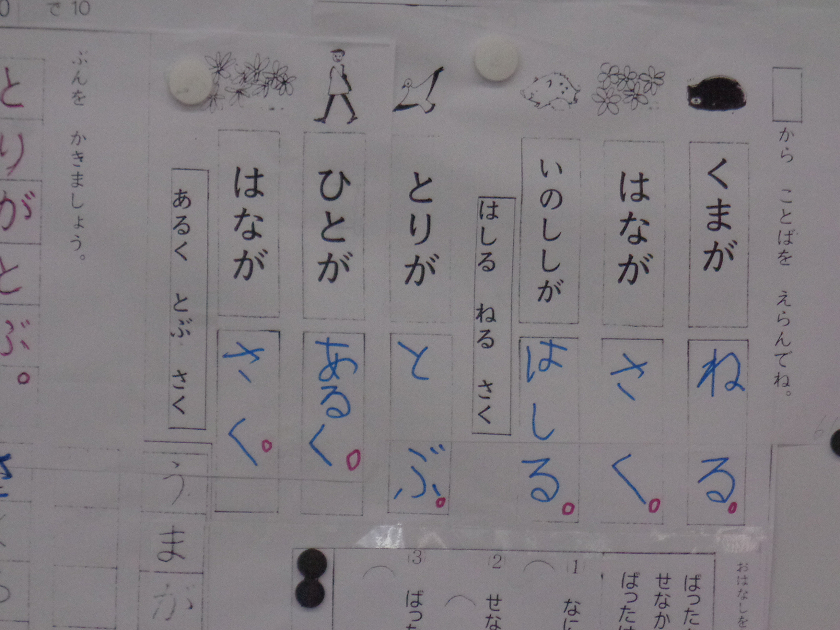 で10
から ことばを えらんでね。
くまが ねる。
はなが さく。
いのししが はしる。
はしる ねる さく
とりが とぶ。
ひとが あるく。
はなが さく。
あるく とぶ さく
ぶんを かきましょう。
うまが
とりがとぶ。
おはなしを
ばった
せなか
ばったは
1 なに
2 せな
3 ばった